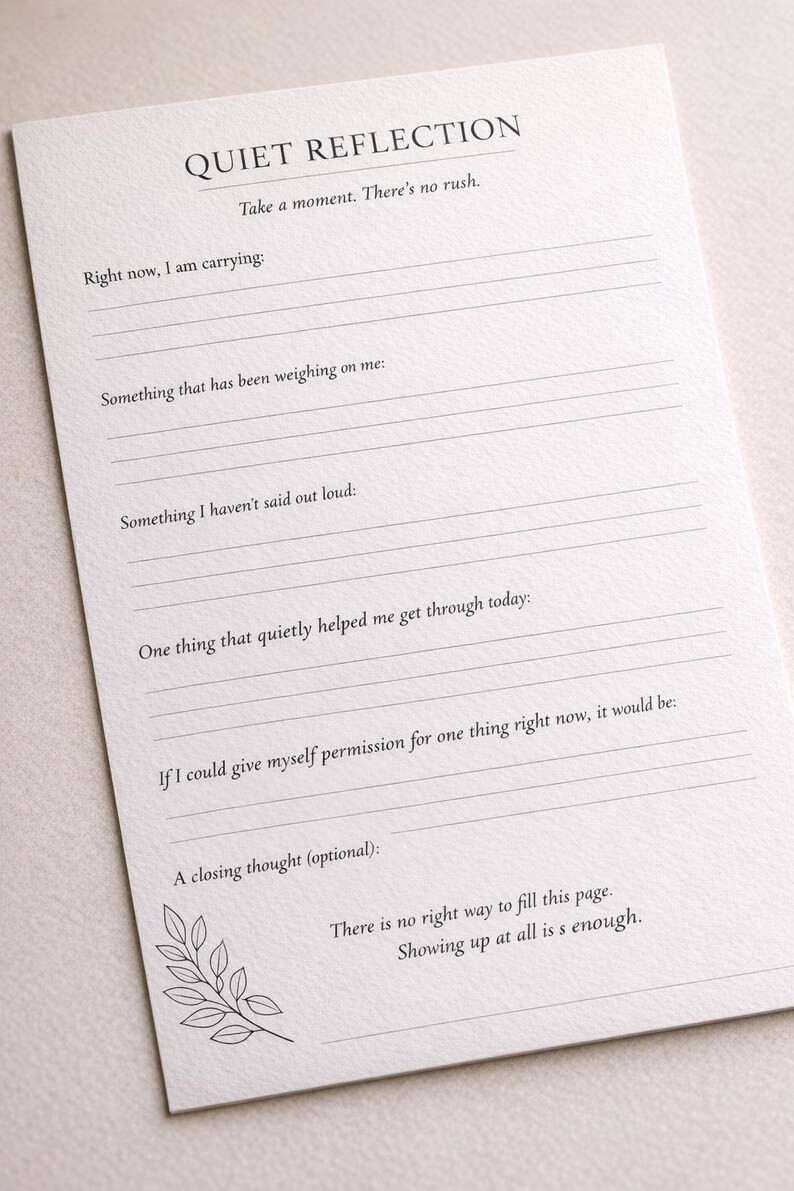 QUIET REFLECTION
Take a moment. There's no rush.
Right now, I am carrying:
Something that has been weighing on me:
Something I haven't said out loud:
One thing that quietly helped me get through today:
If I could give myself permission for one thing right now, it would be:
A closing thought (optional):
There is no right way to fill this page.
Showing up at all is s enough.